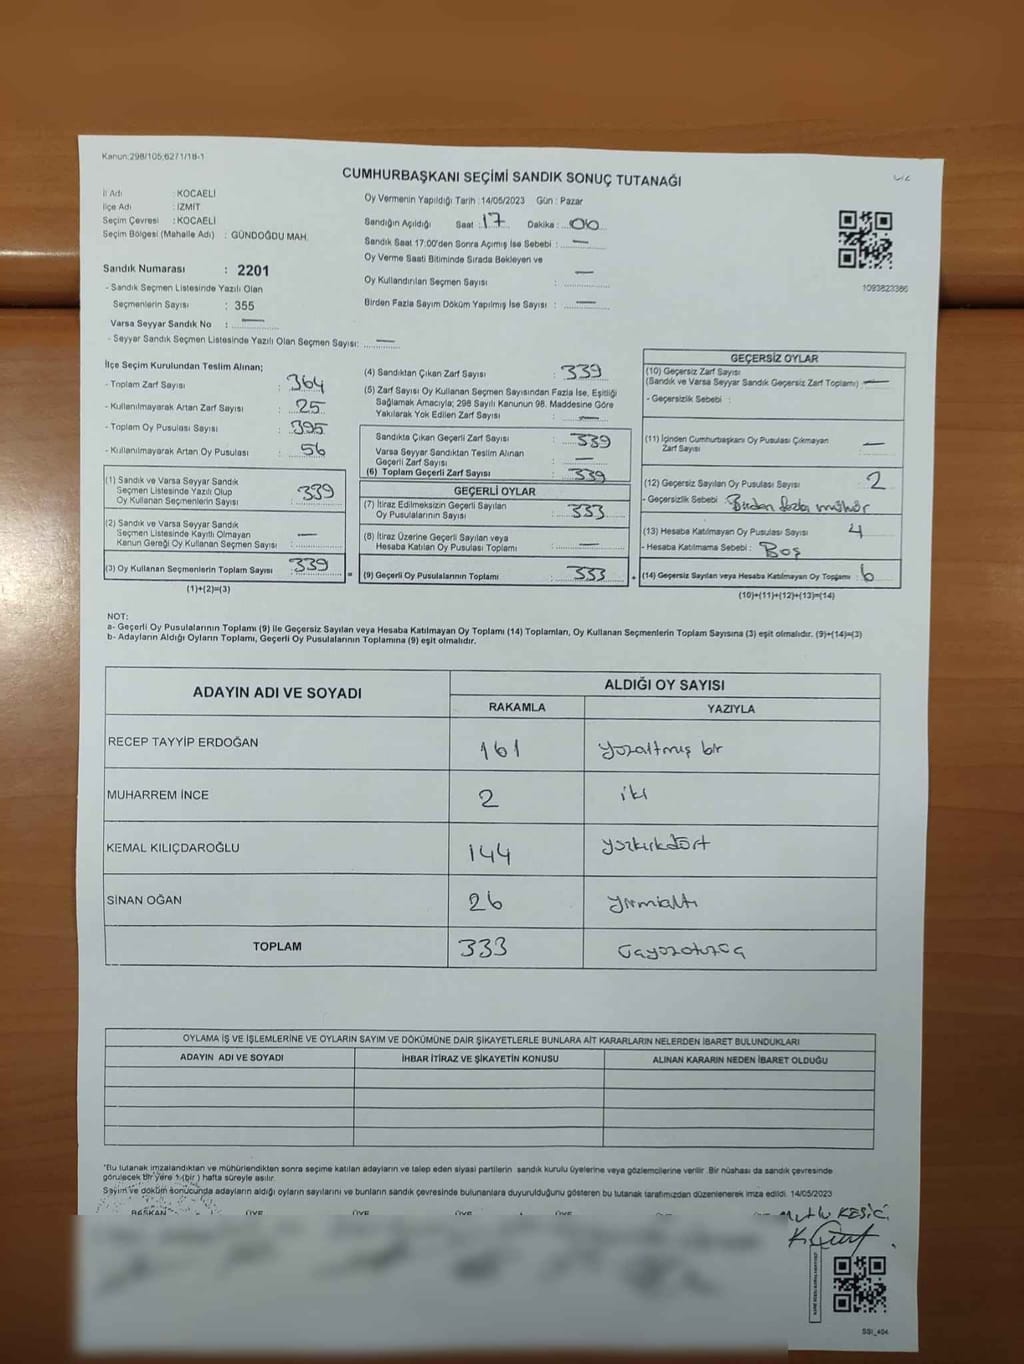 Kanun:298/105;6271/18-1
CUMHURBAŞKANI SEÇİMİ SANDIK SONUÇ TUTANAĞI
1/2
İl Adı : KOCAELİ
İlçe Adı : İZMİT
Seçim Çevresi : KOCAELİ
Seçim Bölgesi (Mahalle Adı) : GÜNDOĞDU MAH.
Oy Vermenin Yapıldığı Tarih :14/05/2023 Gün : Pazar
Sandığın Açıldığı Saat : 17 Dakika : 00
Sandık Saat 17.00'den Sonra Açımış İse Sebebi : —
Oy Verme Saati Bitiminde Sırada Bekleyen ve
Oy Kullandırılan Seçmen Sayısı : —
Birden Fazla Sayım Döküm Yapılmış İse Sayısı : —
1093823386
Sandık Numarası : 2201
- Sandık Seçmen Listesinde Yazılı Olan
Seçmenlerin Sayısı : 355
Varsa Seyyar Sandık No : —
- Seyyar Sandık Seçmen Listesinde Yazılı Olan Seçmen Sayısı: —
İlçe Seçim Kurulundan Teslim Alınan;
- Toplam Zarf Sayısı : 364
- Kullanılmayarak Artan Zarf Sayısı : 25
- Toplam Oy Pusulası Sayısı : 395
- Kullanılmayarak Artan Oy Pusulası : 56
(1) Sandık ve Varsa Seyyar Sandık
Seçmen Listesinde Yazılı Olup
Oy Kullanan Seçmenlerin Sayısı : 339
(2) Sandık ve Varsa Seyyar Sandık
Seçmen Listesinde Kayıtlı Olmayan
Kanun Gereği Oy Kullanan Seçmen Sayısı : —
(3) Oy Kullanan Seçmenlerin Toplam Sayısı : 339
(1)+(2)=(3)
(4) Sandıktan Çıkan Zarf Sayısı : 339
(5) Zarf Sayısı Oy Kullanan Seçmen Sayısından Fazla İse, Eşitliği
Sağlamak Amacıyla; 298 Sayılı Kanunun 98. Maddesine Göre
Yakılarak Yok Edilen Zarf Sayısı : —
Sandıkta Çıkan Geçerli Zarf Sayısı : 339
Varsa Seyyar Sandıktan Teslim Alınan
Geçerli Zarf Sayısı : —
(6) Toplam Geçerli Zarf Sayısı : 339
GEÇERLİ OYLAR
(7) İtiraz Edilmeksizin Geçerli Sayılan
Oy Pusulalarının Sayısı : 333
(8) İtiraz Üzerine Geçerli Sayılan veya
Hesaba Katılan Oy Pusulası Toplamı : —
= (9) Geçerli Oy Pusulalarının Toplamı : 333
GEÇERSİZ OYLAR
(10) Geçersiz Zarf Sayısı
(Sandık ve Varsa Seyyar Sandık Geçersiz Zarf Toplamı) : —
- Geçersizlik Sebebi :
(11) İçinden Cumhurbaşkanı Oy Pusulası Çıkmayan
Zarf Sayısı : —
(12) Geçersiz Sayılan Oy Pusulası Sayısı : 2
- Geçersizlik Sebebi : Birden fazla mühür
(13) Hesaba Katılmayan Oy Pusulası Sayısı : 4
- Hesaba Katılmama Sebebi : Boş
+ (14) Geçersiz Sayılan veya Hesaba Katılmayan Oy Toplamı : 6
(10)+(11)+(12)+(13)=(14)
NOT:
a- Geçerli Oy Pusulalarının Toplamı (9) ile Geçersiz Sayılan veya Hesaba Katılmayan Oy Toplamı (14) Toplamları, Oy Kullanan Seçmenlerin Toplam Sayısına (3) eşit olmalıdır. (9)+(14)=(3)
b- Adayların Aldığı Oyların Toplamı, Geçerli Oy Pusulalarının Toplamına (9) eşit olmalıdır.
ADAYIN ADI VE SOYADI ALDIĞI OY SAYISI
RAKAMLA YAZIYLA
RECEP TAYYİP ERDOĞAN 161 yüzaltmış bir
MUHARREM İNCE 2 iki
KEMAL KILIÇDAROĞLU 144 yüzkırkdört
SİNAN OĞAN 26 yirmialtı
TOPLAM 333 üçyüzotuzüç
OYLAMA İŞ VE İŞLEMLERİNE VE OYLARIN SAYIM VE DÖKÜMÜNE DAİR ŞİKAYETLERLE BUNLARA AİT KARARLARIN NELERDEN İBARET BULUNDUKLARI
ADAYIN ADI VE SOYADI İHBAR İTİRAZ VE ŞİKAYETİN KONUSU ALINAN KARARIN NEDEN İBARET OLDUĞU
"Bu tutanak imzalandıktan ve mühürlendikten sonra seçime katılan adayların ve talep eden siyasi partilerin sandık kurulu üyelerine veya gözlemcilerine verilir. Bir nüshası da sandık çevresinde
görülecek bir yere 1 (bir) hafta süreyle asılır.
Sayım ve döküm sonucunda adayların aldığı oyların sayılarını ve bunların sandık çevresinde bulunanlara duyurulduğunu gösteren bu tutanak tarafımızdan düzenlenerek imza edildi. 14/05/2023
BAŞKAN ÜYE ÜYE ÜYE ÜYE
Mutlu KESİCİ
SSI_404